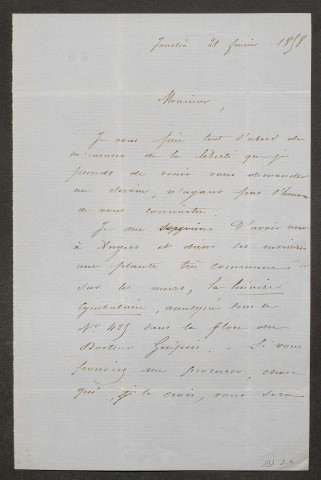 Jeudi 21 février 1858
Monsieur,
Je vous prie tout d'abord de
m'excuser de la liberté que je
prends de venir vous demander
un service, n'ayant pas l'honneur
de vous connaître.
Je me souviens d'avoir vu
à Angers et dans les environs
une plante très commune
sur les murs, la linaire
Cymbalaire, annoncée dans le
N° 425 dans la flore du
Docteur Guépin. Si vous
pouviez me procurer, chose
qui, je le crois, vous sera